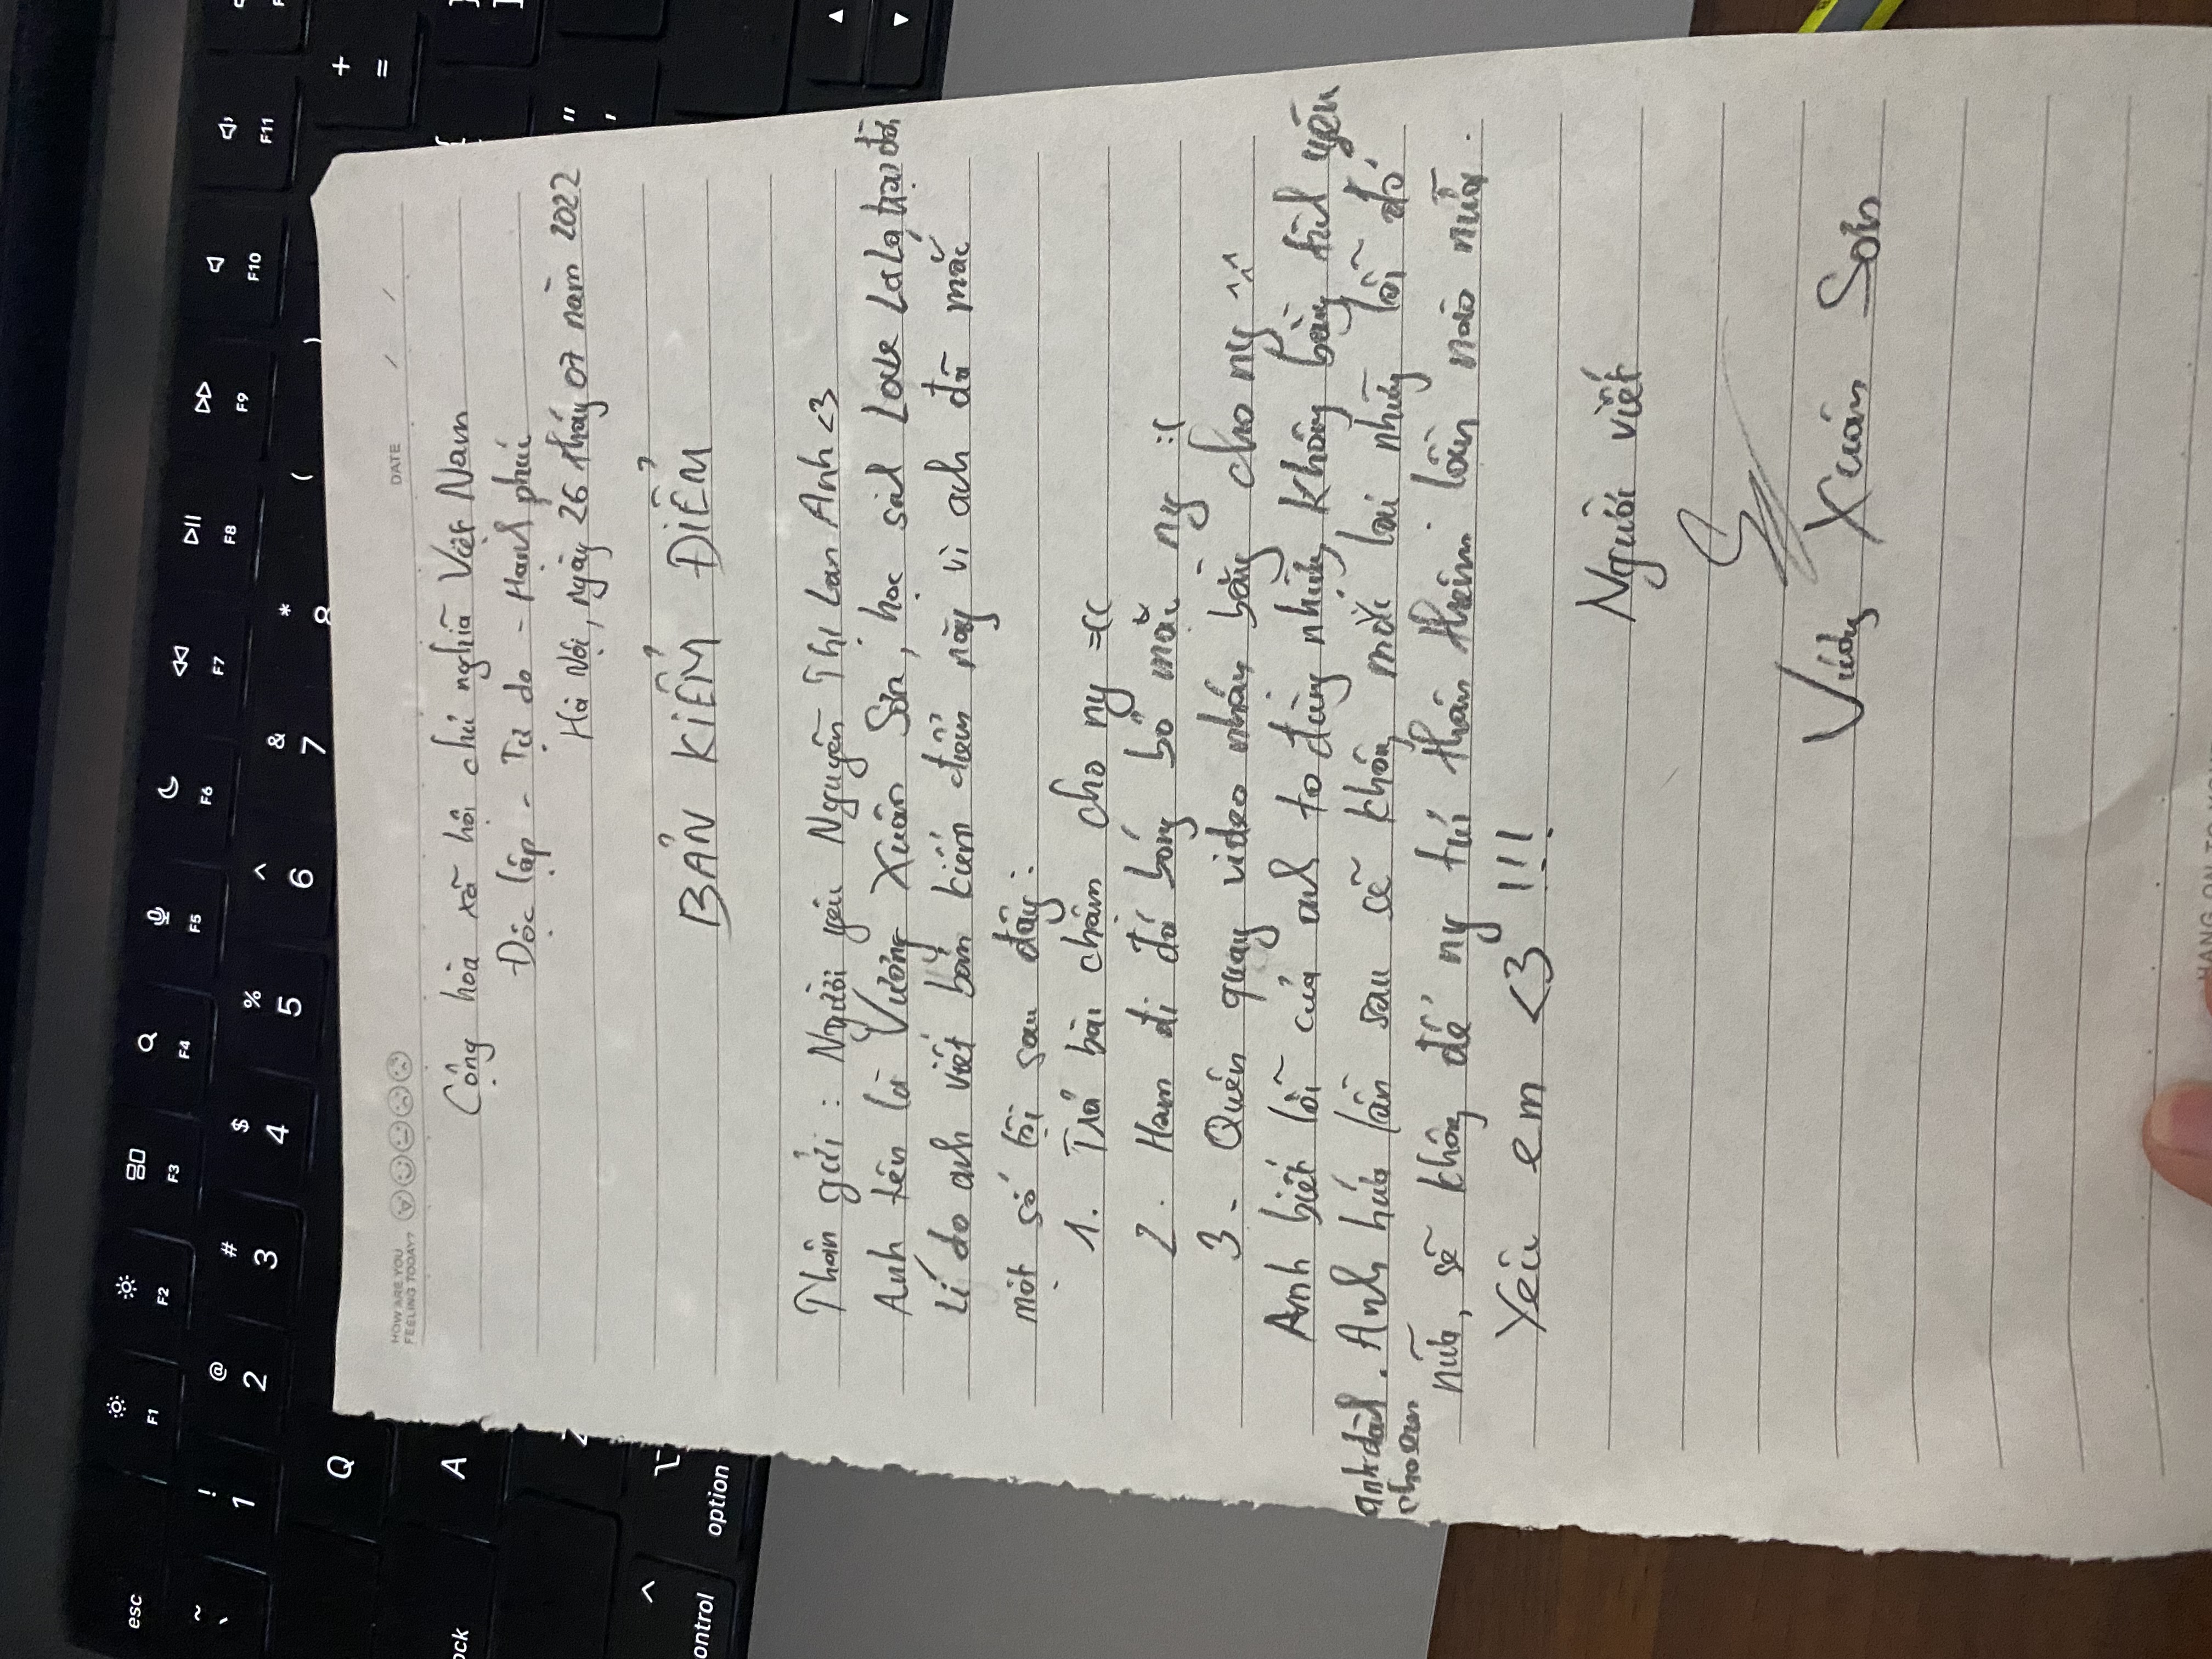 esc
F1
F2
F3
F4
F5
F6
F7
F8
F9
F10
F11
~ ! @ # $ % ^ & * ( )
` 1 2 3 4 5 6 7 8
+
=
Q
A
ock
Z
"
'
ontrol
option
HOW ARE YOU
FEELING TODAY?
DATE / /
Cộng hòa xã hội chủ nghĩa Việt Nam
Độc lập - Tự do - Hạnh phúc
Hà Nội, ngày 26 tháng 07 năm 2022
BẢN KIỂM ĐIỂM
Thân gửi : Người yêu Nguyễn Thị Lan Anh <3
Anh tên là Vương Xuân Sơn, học sinh Love LaLa, trại đời
Lí do anh viết bản kiểm điểm này vì anh đã mắc
một số tội sau đây :
1. Trả bài chậm cho ny =((
2. Ham đi đá bóng bỏ mặc ny :(
3. Quên quay video nhảy cho ny ^^
Anh biết lỗi của anh to đùng nhưng không bằng tình yêu
anh dành
cho em
. Anh hứa lần sau sẽ không mắc lại những lỗi đó
nữa, sẽ không để ny tủi thân thêm lần nào nữa.
Yêu em <3 !!!
Người viết
Vương Xuân Sơn
HANG ON TO YOUR